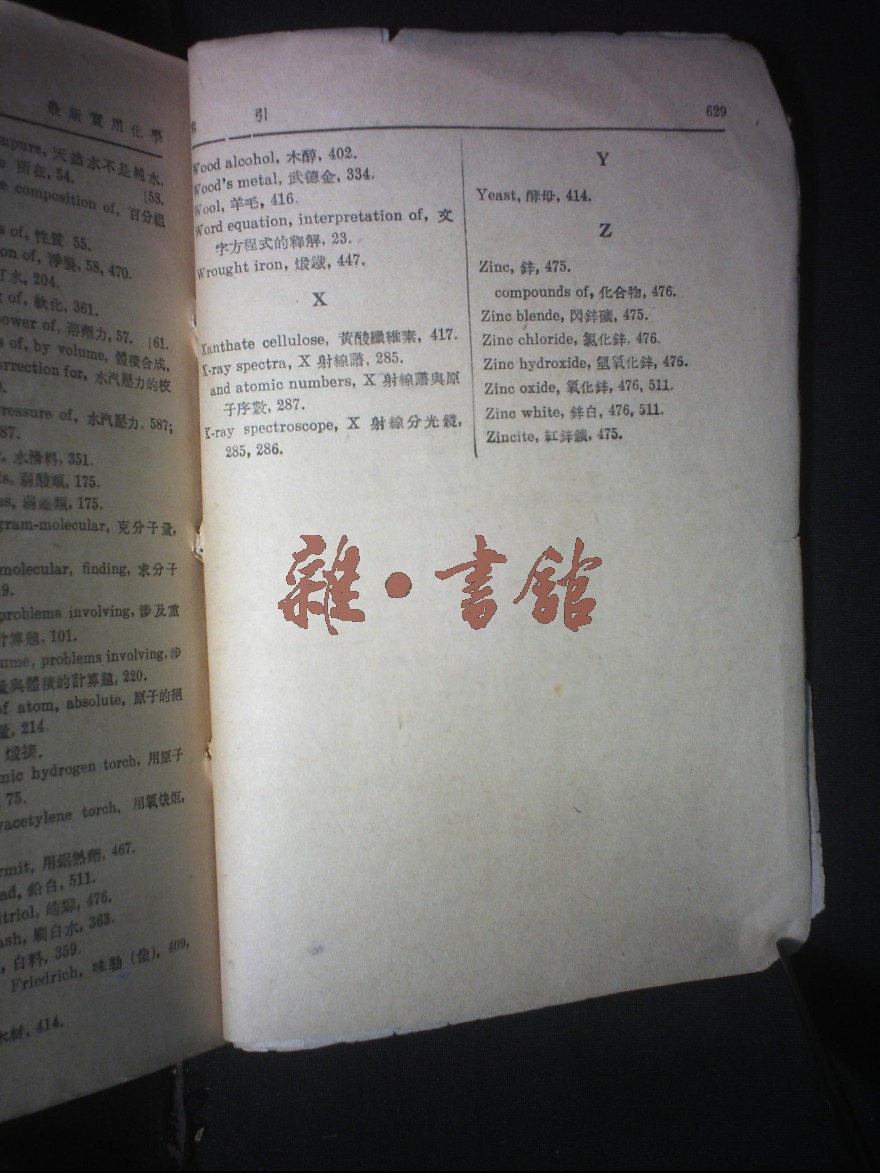 最新實用化學
mpure, 天然水不是純水,
所在, 54.
[58.
e composition of, 百分組
s of, 性質 55.
on of, 淨製, 58, 470.
水, 204.
g of, 軟化, 361.
power of, 溶劑力, 57. [61.
s of, by volume, 體積合成,
orrection for, 水汽壓力的校
ressure of, 水汽壓力, 587;
87.
水清料, 351.
s, 弱酸類, 175.
es, 175.
gram-molecular, 克分子量,
molecular, finding, 求分子
9.
problems involving, 涉及重
計算題, 101.
ume, problems involving, 涉
量與體積的計算題, 220.
of atom, absolute, 原子的絕
量, 214.
煅接.
nic hydrogen torch, 用原子
75.
yacetylene torch, 用氧炔炬,
rmit, 用鋁熱劑, 467.
ad, 鉛白, 511.
itriol, 皓礬, 476.
ash, 刷白水, 363.
, 白料, 359.
Friedrich, 409,
木材, 414.
引 629
Wood alcohol, 木醇, 402.
Wood's metal, 武德金, 334.
Wool, 羊毛, 416.
Word equation, interpretation of, 文
字方程式的釋解, 23.
Wrought iron, 煅鐵, 447.
X
Xanthate cellulose, 黃酸纖維素, 417.
X-ray spectra, X 射線譜, 285.
and atomic numbers, X 射線譜與原
子序數, 287.
X-ray spectroscope, X 射線分光鏡,
285, 286.
Y
Yeast, 酵母, 414.
Z
Zinc, 鋅, 475.
compounds of, 化合物, 476.
Zinc blende, 閃鋅礦, 475.
Zinc chloride, 氯化鋅, 476.
Zinc hydroxide, 氫氧化鋅, 476.
Zinc oxide, 氧化鋅, 476, 511.
Zinc white, 鋅白, 476, 511.
Zincite, 紅鋅鑛, 475.
雜·書館